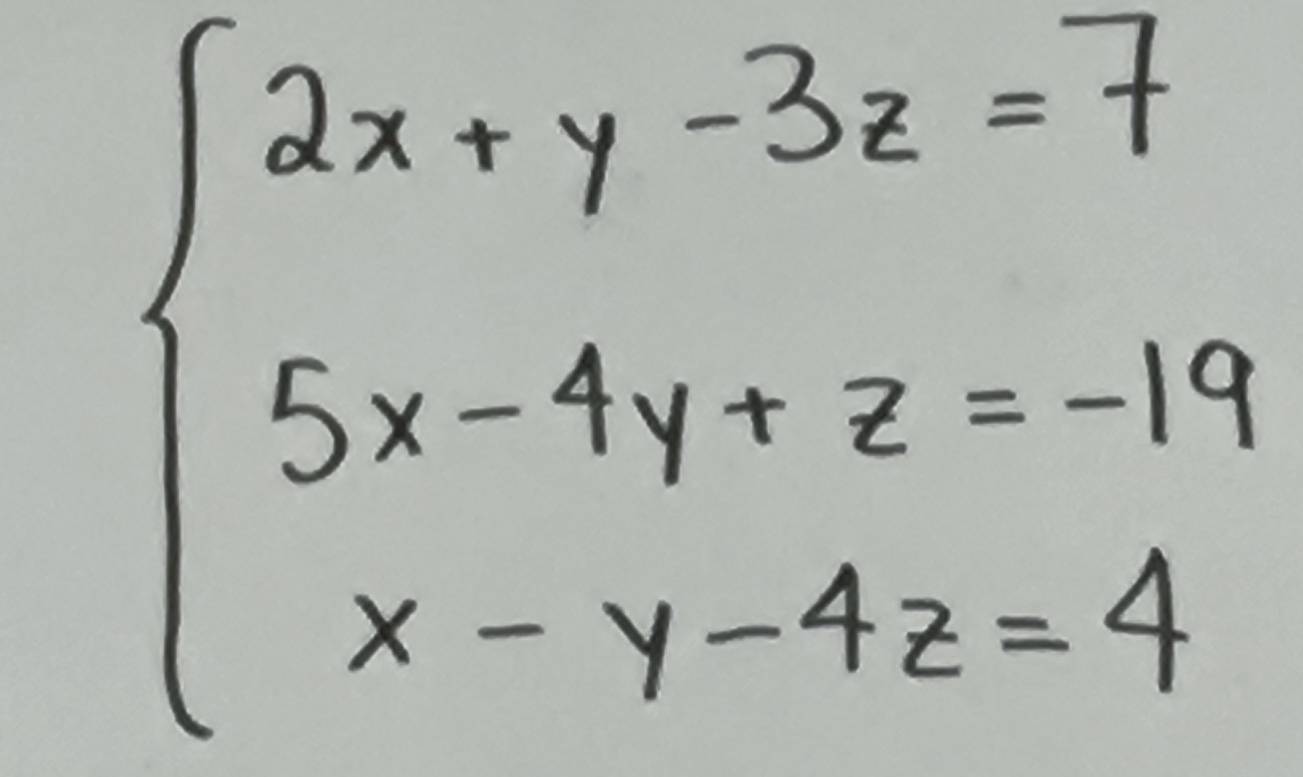 2x + y - 3z = 7
5x - 4y + z = -19
x - y - 4z = 4